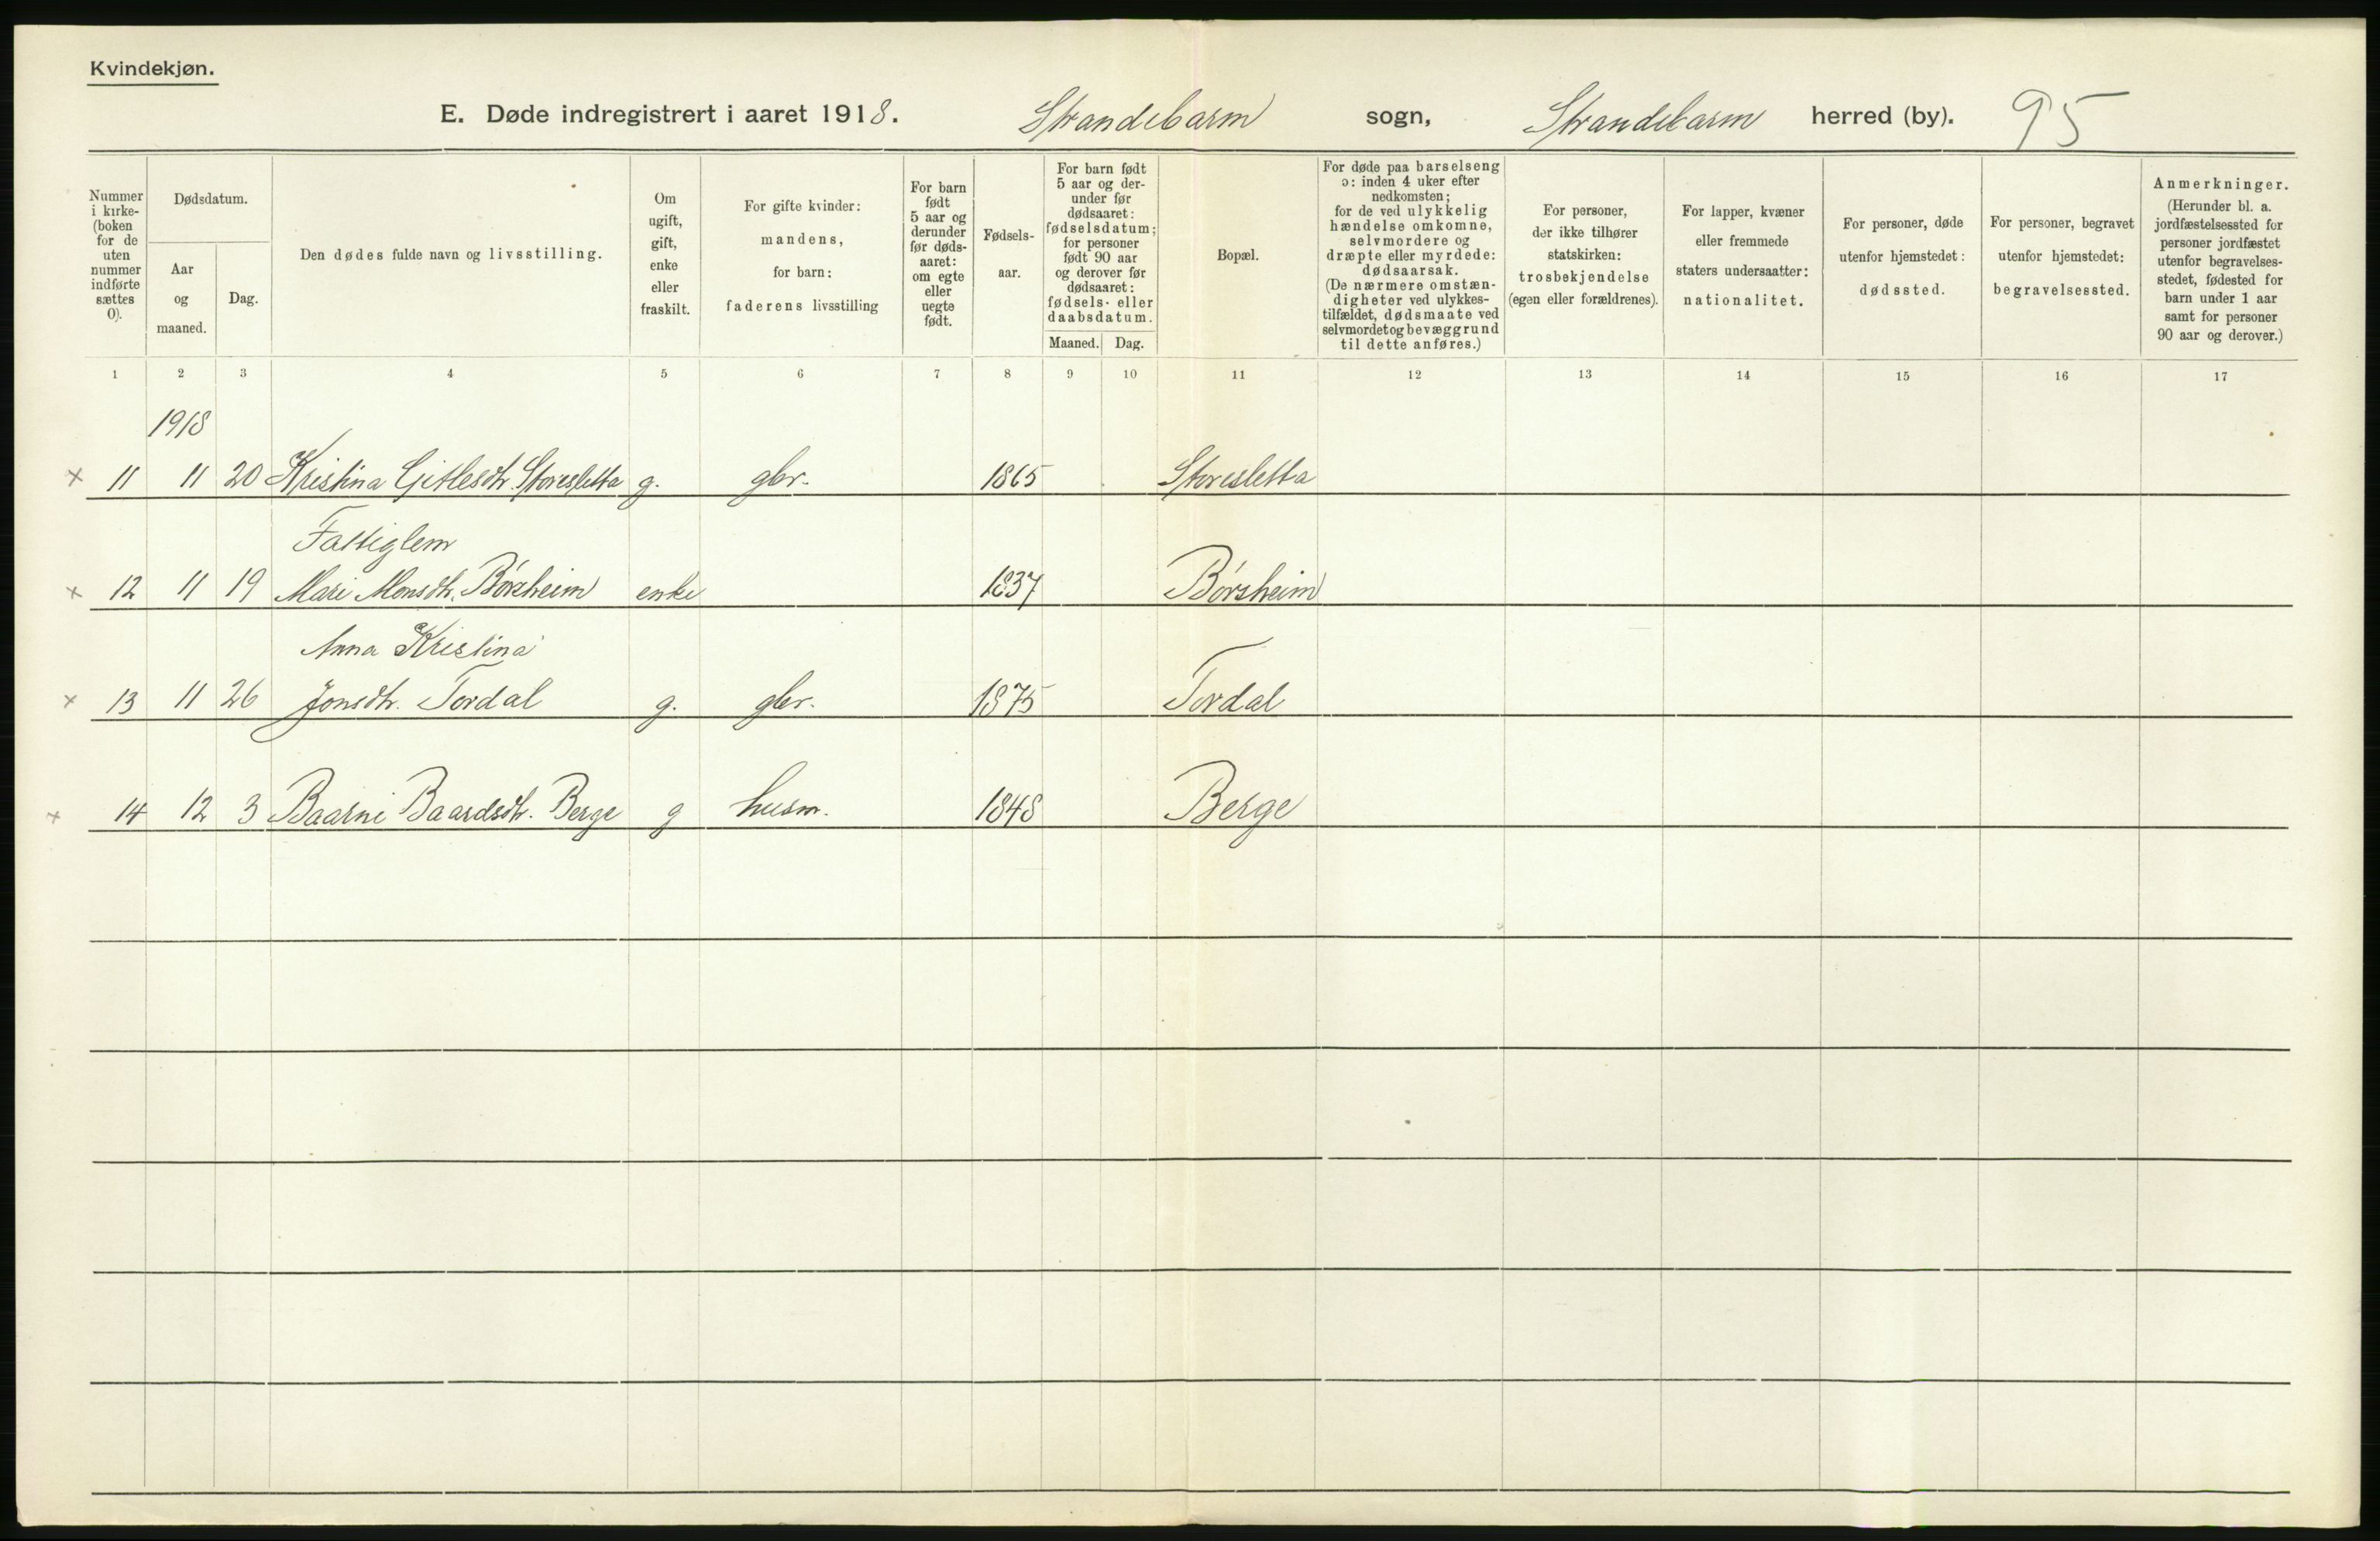 Kvindekjøn.
E. Døde indregistrert i aaret 1918. Strandebarm sogn, Strandebarm herred (by). 95
Nummer i kirke- (boken for de uten nummer indførte sættes 0).
Dødsdatum.
Aar og maaned.
Dag.
Den dødes fulde navn og livsstilling.
Om ugift, gift, enke eller fraskilt.
For gifte kvinder: mandens, for barn: faderens livsstilling
For barn født 5 aar og derunder før døds- aaret: om egte eller uegte født.
Fødsels- aar.
For barn født 5 aar og der- under før dødsaaret: fødselsdatum; for personer født 90 aar og derover før dødsaaret: fødsels- eller daabsdatum.
Maaned. Dag.
Bopæl.
For døde paa barselseng ɔ: inden 4 uker efter nedkomsten; for de ved ulykkelig hændelse omkomne, selvmordere og dræpte eller myrdede: dødsaarsak. (De nærmere omstæn- digheter ved ulykkes- tilfældet, dødsmaate ved selvmordet og bevæggrund til dette anføres.)
For personer, der ikke tilhører statskirken: trosbekjendelse (egen eller forældrenes).
For lapper, kvæner eller fremmede staters undersaatter: nationalitet.
For personer, døde utenfor hjemstedet: dødssted.
For personer, begravet utenfor hjemstedet: begravelsessted.
Anmerkninger. (Herunder bl. a. jordfæstelsessted for personer jordfæstet utenfor begravelses- stedet, fødested for barn under 1 aar samt for personer 90 aar og derover.)
1 2 3 4 5 6 7 8 9 10 11 12 13 14 15 16 17
1918
× 11 11 20 Kristina Gitlesdtr. Storesletta g. gbr. 1865 Storesletta
Fattiglem
× 12 11 19 Mari Monsdtr. Børsheim enke 1837 Børsheim
Anna Kristina
× 13 11 26 Jonsdtr. Tordal g. gbr. 1875 Tordal
× 14 12 3 Baarni Baardsdtr. Berge g husm. 1848 Berge